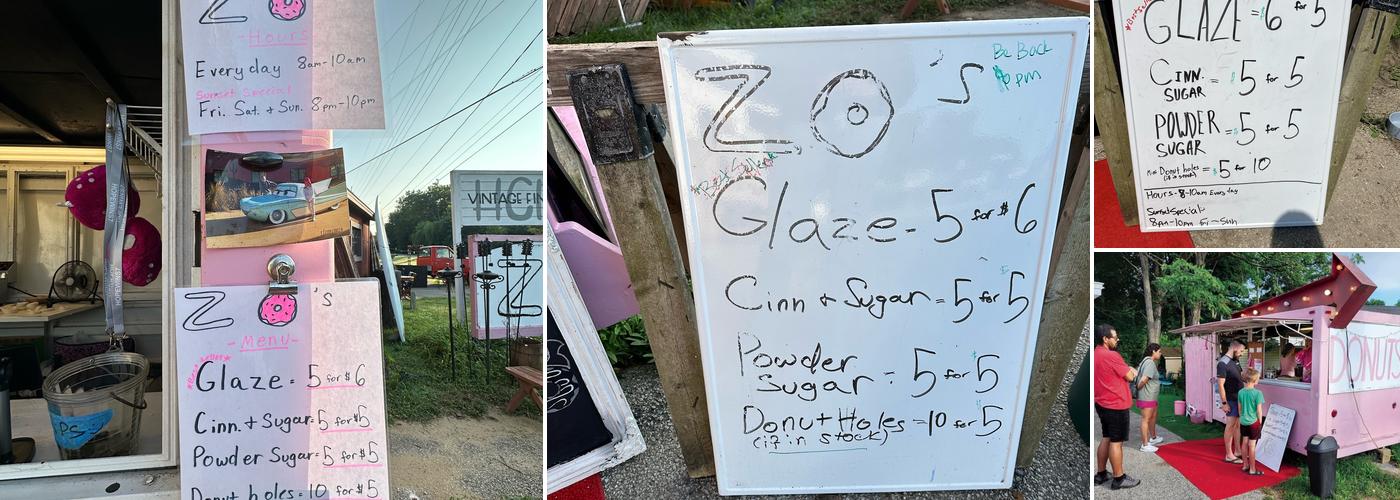 ZO
-Hours-
Everyday 8am-10am
Sunset Special
Fri. Sat. + Sun. 8pm-10pm
ZO'S
-Menu-
*Best Seller*
Glaze = 5 for $6
Cinn. + Sugar = 5 for $5
Powder Sugar = 5 for $5
Donut holes = 10 for $5
VINTAGE FIN
Z
PS
ZO'S
Be Back
8pm
*Best Seller*
Glaze - 5 for $6
Cinn + Sugar = 5 for $5
Powder
Sugar = 5 for $5
Donut Holes = 10 for $5
(if in stock)
GLAZE = $6 for 5
CINN.
SUGAR = $5 for 5
POWDER
SUGAR = $5 for 5
Mini Donut holes = $5 for 10
(if in stock)
Hours - 8-10am Everyday
Sunset Special
8pm-10pm Fri-Sun
DONUTS